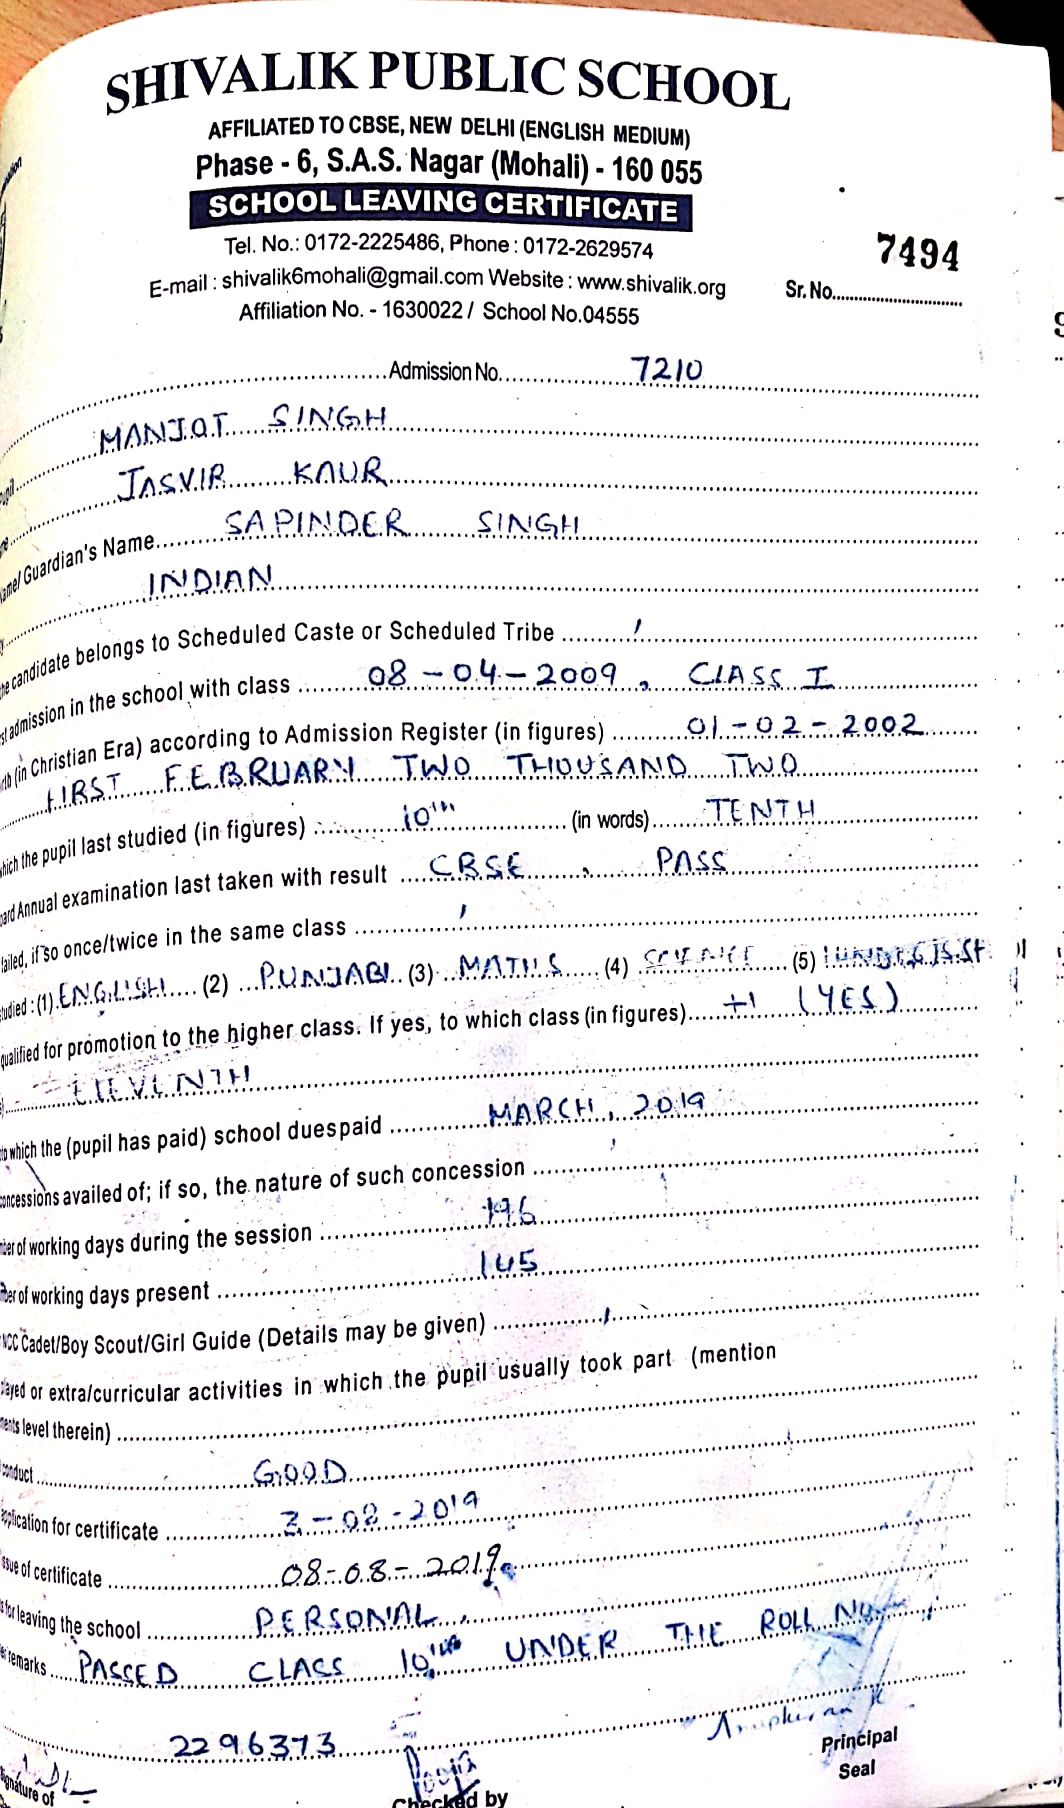 SHIVALIK PUBLIC SCHOOL
AFFILIATED TO CBSE, NEW DELHI (ENGLISH MEDIUM)
Phase - 6, S.A.S. Nagar (Mohali) - 160 055
SCHOOL LEAVING CERTIFICATE
Tel. No.: 0172-2225486, Phone : 0172-2629574
7494
E-mail : shivalik6mohali@gmail.com Website : www.shivalik.org
Sr. No.
Affiliation No. - 1630022 / School No.04555
Admission No. 7210
MANJOT SINGH
JASVIR KAUR
Guardian's Name SAPINDER SINGH
INDIAN
candidate belongs to Scheduled Caste or Scheduled Tribe
admission in the school with class 08-04-2009, CLASS I
(in Christian Era) according to Admission Register (in figures) 01-02-2002
FIRST FEBRUARY TWO THOUSAND TWO
which the pupil last studied (in figures) 10th (in words) TENTH
Annual examination last taken with result CBSE, PASS
failed, if so once/twice in the same class
(1) ENGLISH (2) PUNJABI (3) MATHS (4) SCIENCE (5)
qualified for promotion to the higher class. If yes, to which class (in figures) +1 (YES)
to which the (pupil has paid) school duespaid MARCH, 2019
concessions availed of; if so, the nature of such concession
of working days during the session 196
of working days present 145
NCC Cadet/Boy Scout/Girl Guide (Details may be given)
or extra/curricular activities in which the pupil usually took part (mention
level therein)
conduct GOOD
application for certificate 2-08-2019
of certificate 08-08-2019
for leaving the school PERSONAL
remarks PASSED CLASS 10th UNDER THE ROLL NO
2296373
Principal
Seal
Signature of
Checked by